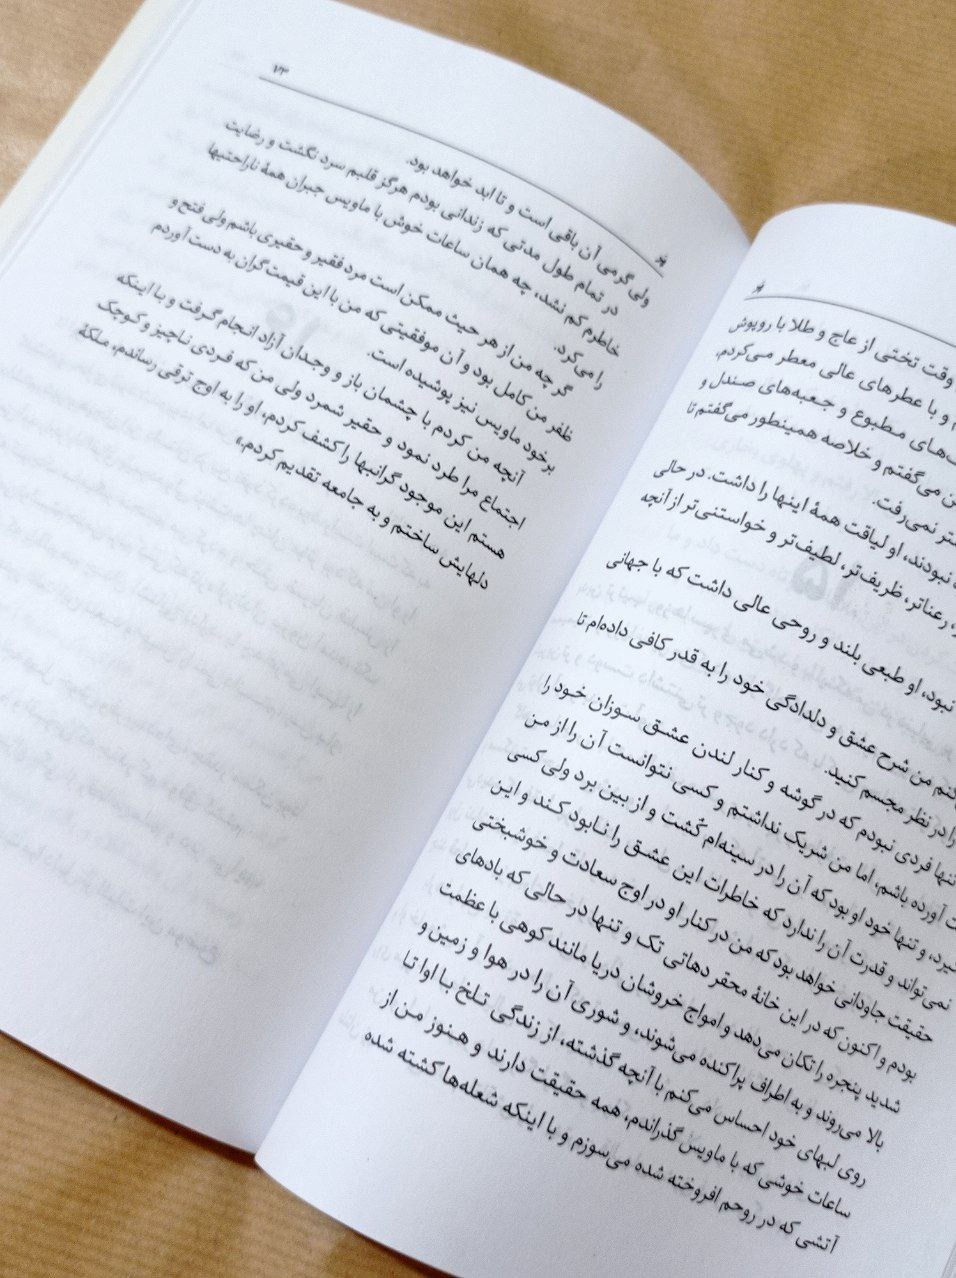 وقت تختی از عاج و طلا با روپوش
و با عطرهای عالی معطر می‌کردم،
‌های مطبوع و جعبه‌های صندل و
می‌گفتم و خلاصه همینطور می‌گفتم تا
نمی‌رفت.
نبودند، او لیاقت همهٔ اینها را داشت. در حالی
رعناتر، ظریف‌تر، لطیف‌تر و خواستنی‌تر از آنچه
نبود، او طبعی بلند و روحی عالی داشت که با جهانی
کنم من شرح عشق و دلدادگی خود را به قدر کافی داده‌ام تا
را در نظر مجسم کنید.
تنها فردی نبودم که در گوشه و کنار لندن عشق سوزان خود را
آورده باشم، اما من شریک نداشتم و کسی نتوانست آن را از من
گیرد، و تنها خود او بود که آن را در سینه‌ام کُشت و از بین برد ولی کسی
نمی‌تواند و قدرت آن را ندارد که خاطرات این عشق را نابود کند و این
حقیقت جاودانی خواهد بود که من در کنار او در اوج سعادت و خوشبختی
بودم و اکنون که در این خانهٔ محقر دهاتی تک و تنها در حالی که بادهای
شدید پنجره را تکان می‌دهد و امواج خروشان دریا مانند کوهی با عظمت
بالا می‌روند و به اطراف پراکنده می‌شوند، و شوری آن را در هوا و زمین و
روی لبهای خود احساس می‌کنم با آنچه گذشته، از زندگی تلخ با اوا تا
ساعات خوشی که با ماویس گذراندم، همه حقیقت دارند و هنوز من از
آتشی که در روحم افروخته شده می‌سوزم و با اینکه شعله‌ها کشته شده
۷۳
ولی گرمی آن باقی است و تا ابد خواهد بود.
در تمام طول مدتی که زندانی بودم هرگز قلبم سرد نگشت و رضایت
خاطرم کم نشد، چه همان ساعات خوش با ماویس جبران همهٔ ناراحتیها
را می‌کرد.
گر چه من از هر حیث ممکن است مرد فقیر و حقیری باشم ولی فتح و
ظفر من کامل بود و آن موفقیتی که من با این قیمت گران به دست آوردم
برخود ماویس نیز پوشیده است.
آنچه من کردم با چشمان باز و وجدان آزاد انجام گرفت و با اینکه
اجتماع مرا طرد نمود و حقیر شمرد ولی من که فردی ناچیز و کوچک
هستم این موجود گرانبها را کشف کردم، او را به اوج ترقی رساندم، ملکهٔ
دلهایش ساختم و به جامعه تقدیم کردم.»